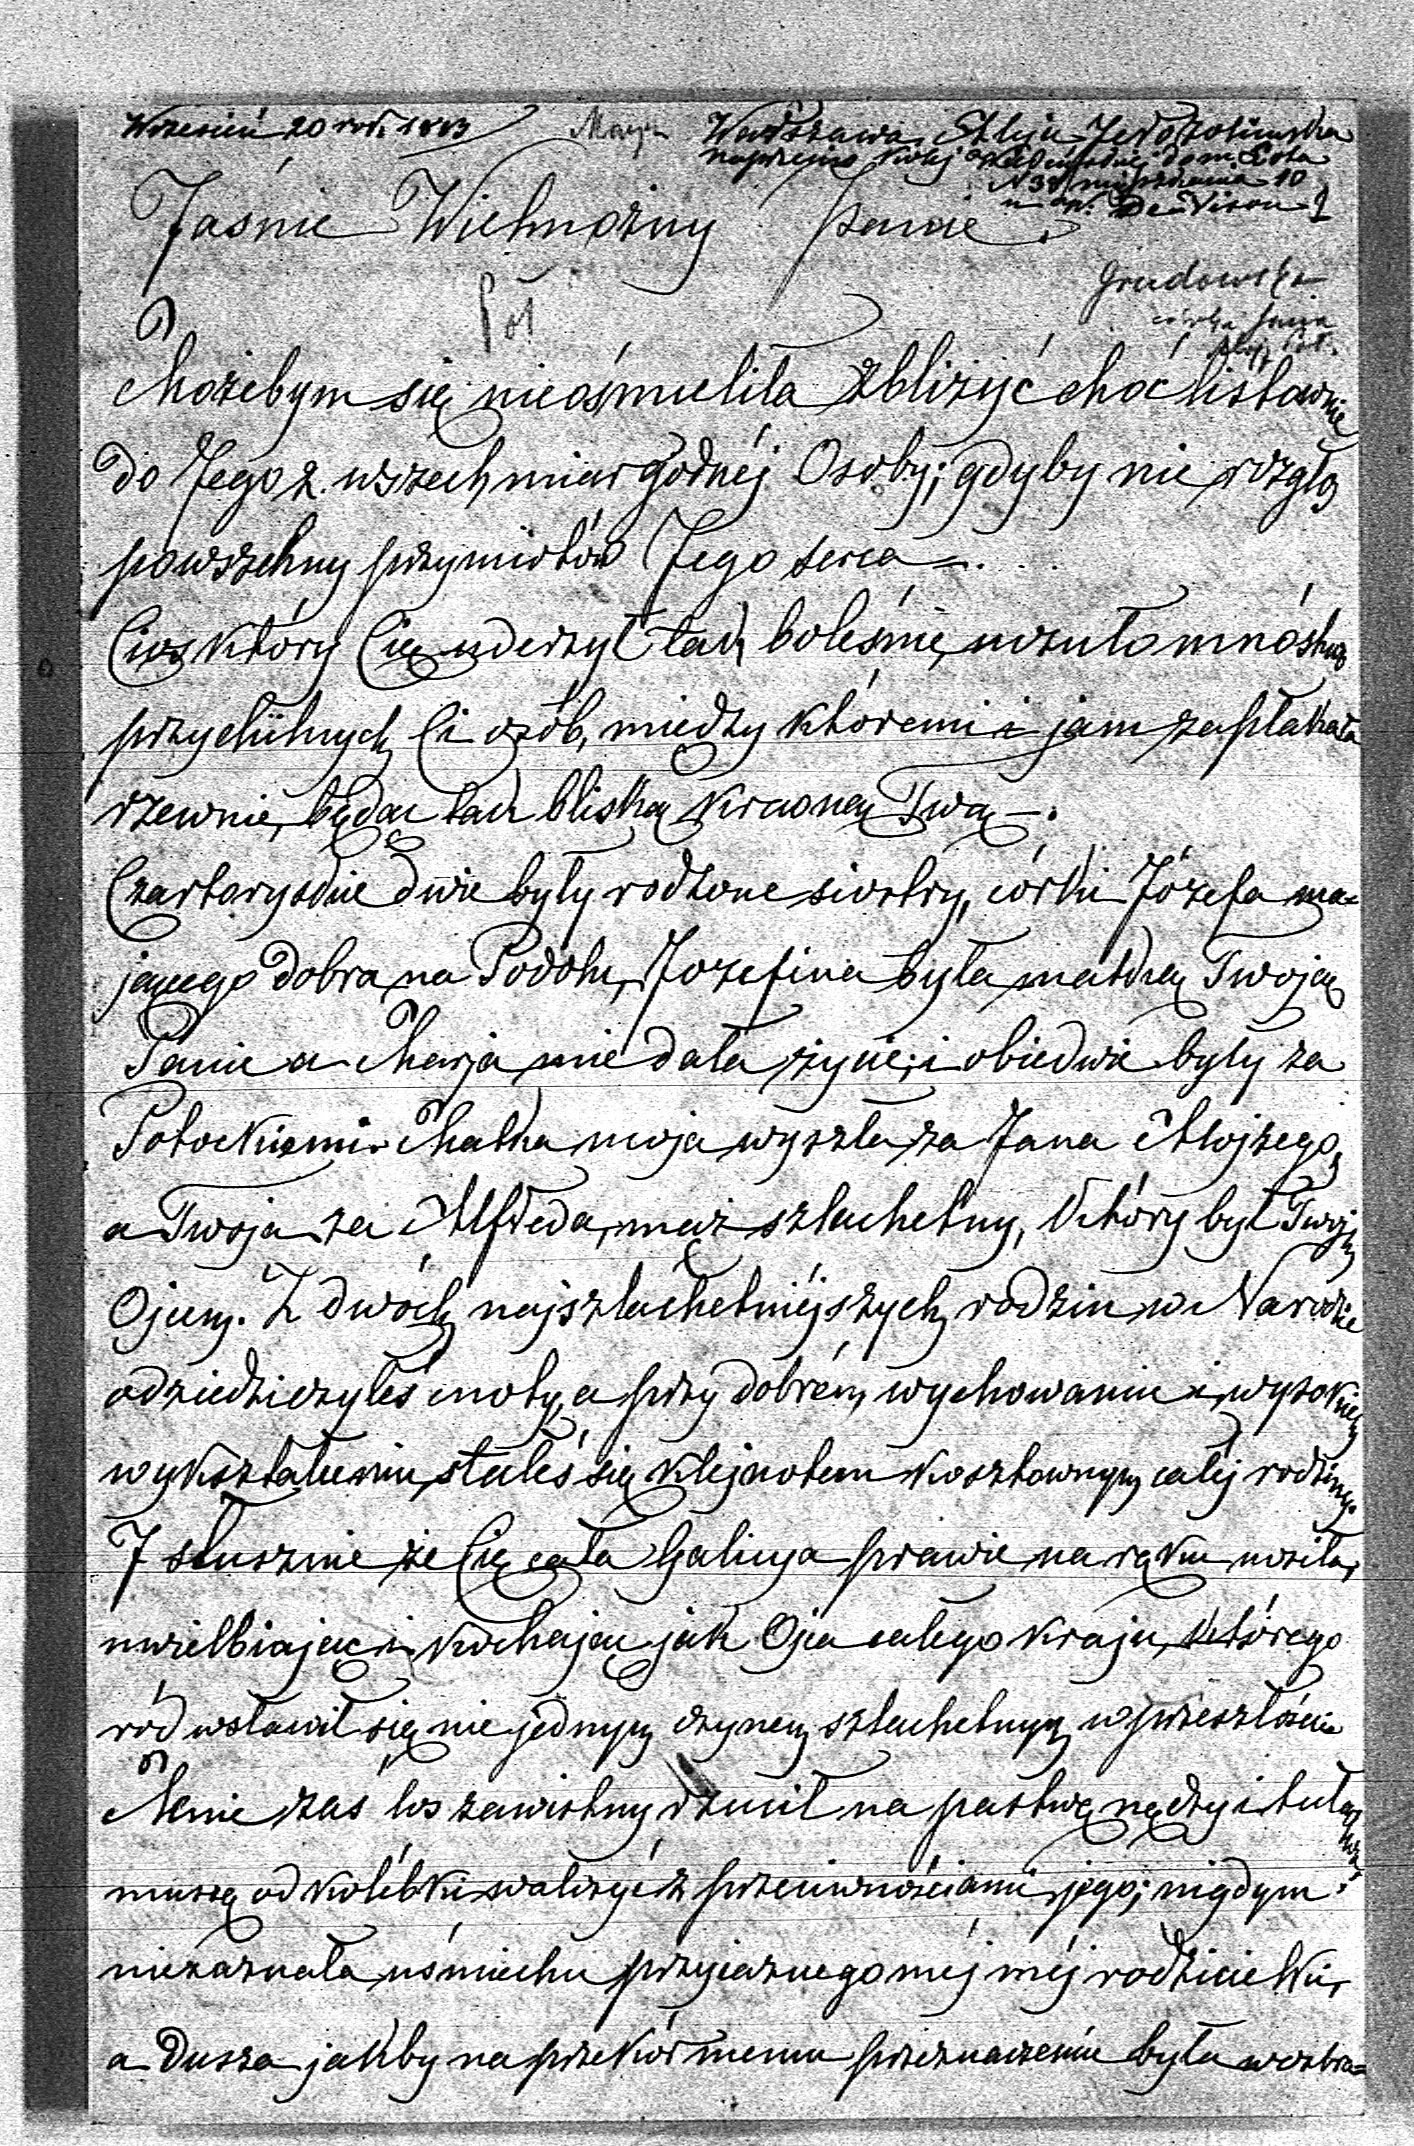 Wrzesień 20 rok. 1883
Warszawa Alleja Jerozolimska
naprzeciw kolej Wiedeńskiej dom
N 38 mieszkania 10
Jaśnie Wielmożny Panie
Pot
Grudowska
córka Jana
Aloj. Pot.
Możebym się nieośmieliła zbliżyć choć listownie
do Jego z wszech miar godnéj Osoby; gdyby nie rozgłos
powszehny przymiotów Jego serca —.
Cios który Cię uderzył tak boleśnie, wzruło mnóstwo
przychilnych Ci osób, między któremi i jam zapłakała
rzewnie, będąc tak bliską krewną Twą —.
Czartoryskie dwie były rodzone siostry, córki Józefa ma=
jącego dobra na Podolu, Jozefina była matką Twoją
Panie a Marja mnie dała życie; i obiedwie były za
Potockiemi. Matka moja wyszła za Jana Alojzego,
a Twoja za Alfreda, mąż szlachetny, który był Twojim
Ojcem. Z dwóch najszlachetniéjszych rodzin w Narodzie
odziedziczyłeś cnoty, a przy dobrém wychowaniu i wysokiem
wykształceniu, stałeś się klejnotem kosztownym całéj rodziny.
I słusznie że Cię cała Galicya prawie na ręku nosiła,
uwielbiając i kochając jak Ojca całego kraju, którego
ród wsławił się nie jednym czynem szlachetnym w przeszłości
Mnie zaś los zawistny rzucił na pastwę nędzy i tułactwa,
muszę od kolébki walczyć z przeciwnościami jego; nigdym
niezaznała uśmiechu przyjaznego méj méj rodzicielki,
a dusza jakby na przekór memu przeznaczeniu była wezbra=